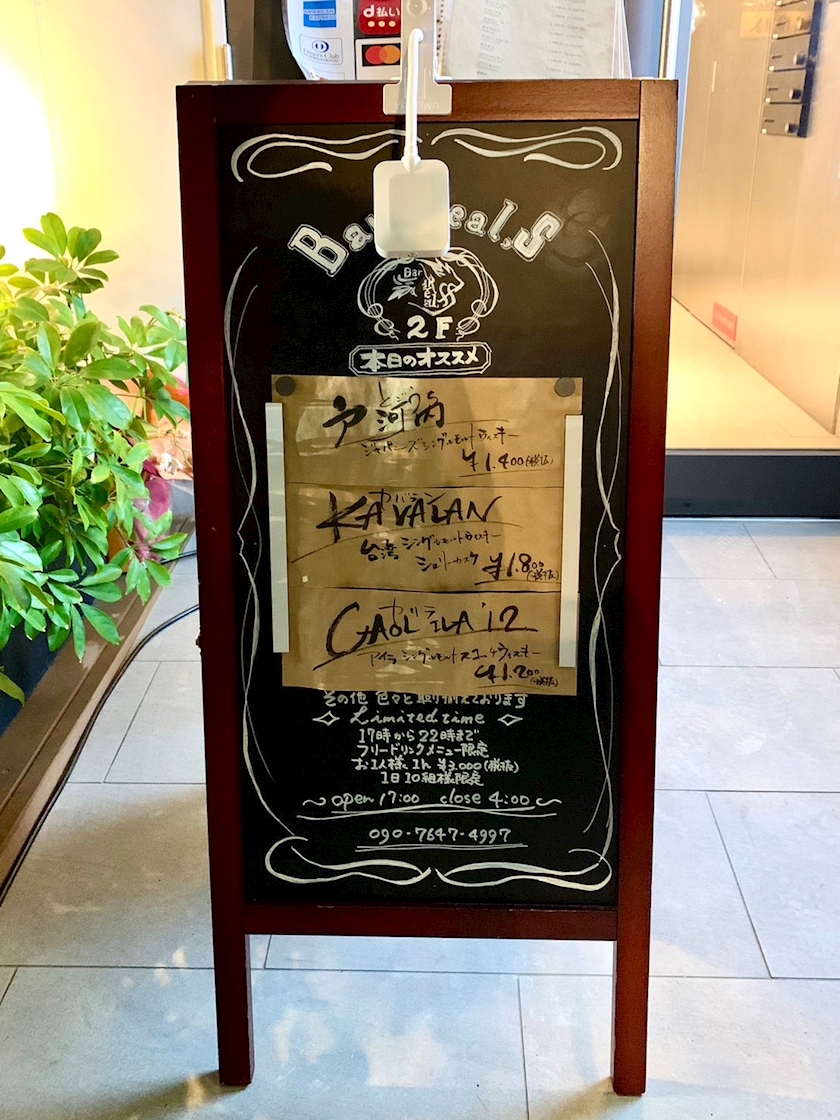 d払い
Diners Club
YAZAWA
Ba eal,S
Bar
2F
本日のオススメ
とごうち
戸河内
ジャパニーズシングルモルトウィスキー
¥1.400(税抜)
カバラン
KAVALAN
台湾 シングルモルトウィスキー
シェリーカスク ¥1.800
(税抜)
カリラ
CAOL ILA '12
アイラ シングルモルトスコッチウィスキー
¥1.200(税抜)
その他 色々と取り揃えております
Limited time
17時から22時まで
フリードリンクメニュー限定
お1人様 1h ¥3.000(税抜)
1日10組様限定
open 17:00 close 4:00
090-7647-4997